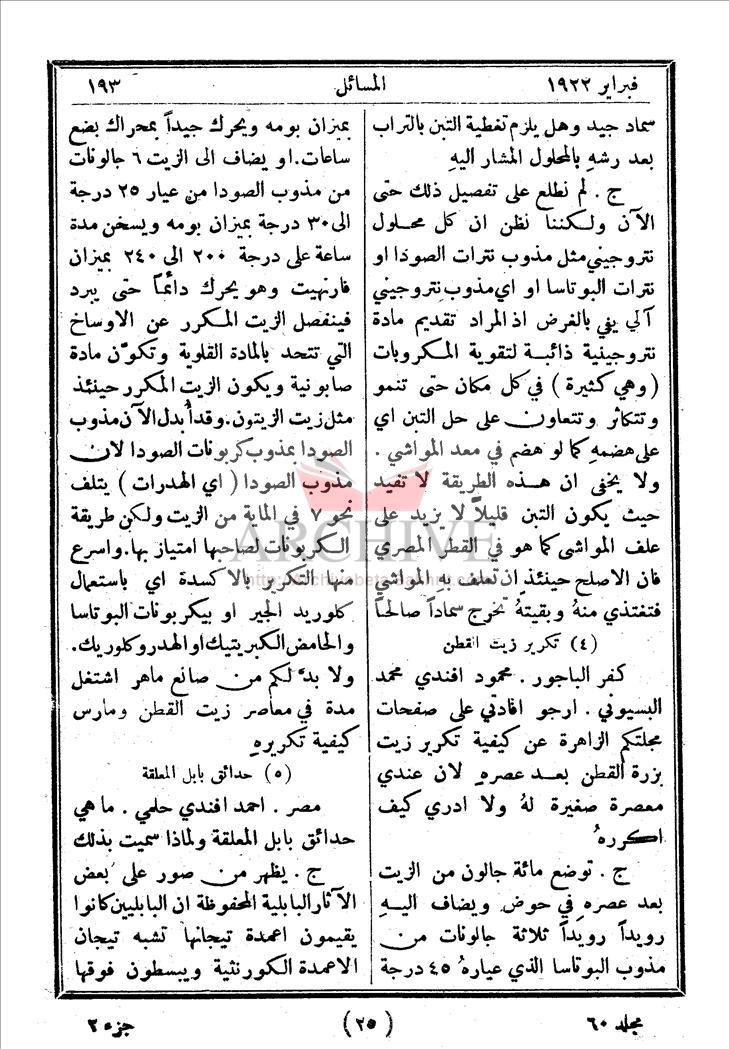 فبراير ١٩٢٢
المسائل
١٩٣
سماد جيد وهل يلزم تغطية التبن بالتراب
بعد رشهِ بالمحلول المشار اليهِ
ج . لم نطلع على تفصيل ذلك حتى
الآن ولكننا نظن ان كل محلول
نتروجيني مثل مذوب نترات الصودا او
نترات البوتاسا او اي مذوب نتروجيني
آلي يفي بالغرض اذ المراد تقديم مادة
نتروجينية ذائبة لتقوية المكروبات
( وهي كثيرة ) في كل مكان حتى تنمو
وتتكاثر وتتعاون على حل التبن اي
على هضمهِ كما لو هضم في معد المواشي .
ولا يخفى ان هذه الطريقة لا تفيد
حيث يكون التبن قليلاً لا يزيد على
علف المواشي كما هو في القطر المصري
فان الاصلح حينئذٍ ان تعلف بهِ المواشي
فتغتذي منهُ وبقيتهُ تخرج سماداً صالحاً
(٤) تكرير زيت القطن
كفر الباجور . محمود افندي محمد
البسيوني . ارجو افادتي على صفحات
مجلتكم الزاهرة عن كيفية تكرير زيت
بزرة القطن بعد عصرهِ لان عندي
معصرة صغيرة لهُ ولا ادري كيف
اكررهُ
ج . توضع مائة جالون من الزيت
بعد عصرهِ في حوض ويضاف اليهِ
رويداً رويداً ثلاثة جالونات من
مذوب البوتاسا الذي عيارهُ ٤٥ درجة
بميزان بومه ويحرك جيداً بمحراك بضع
ساعات . او يضاف الى الزيت ٦ جالونات
من مذوب الصودا من عيار ٢٥ درجة
الى ٣٠ درجة بميزان بومه ويسخن مدة
ساعة على درجة ٢٠٠ الى ٢٤٠ بميزان
فارنهيت وهو يحرك دائماً حتى يبرد
فينفصل الزيت المكرر عن الاوساخ
التي تتحد بالمادة القلوية وتكوّن مادة
صابونية ويكون الزيت المكرر حينئذ
مثل زيت الزيتون . وقد أُبدل الآن مذوب
الصودا بمذوب كربونات الصودا لان
مذوب الصودا ( اي الهدرات ) يتلف
نحو ٧ في الماية من الزيت ولكن طريقة
الكربونات لصاحبها امتياز بها . واسرع
منها التكرير بالاكسدة اي باستعمال
كلوريد الجير او بيكربونات البوتاسا
والحامض الكبريتيك او الهدروكلوريك .
ولا بدَّ لكم من صانع ماهر اشتغل
مدة في معاصر زيت القطن ومارس
كيفية تكريرهِ
(٥) حدائق بابل المعلقة
مصر . احمد افندي حلمي . ما هي
حدائق بابل المعلقة ولماذا سميت بذلك
ج . يظهر من صور على بعض
الآثار البابلية المحفوظة ان البابليين كانوا
يقيمون اعمدة تيجانها تشبه تيجان
الاعمدة الكورنثية ويبسطون فوقها
مجلد ٦٠
(٢٥)
جزء ٢
ARCHIVE